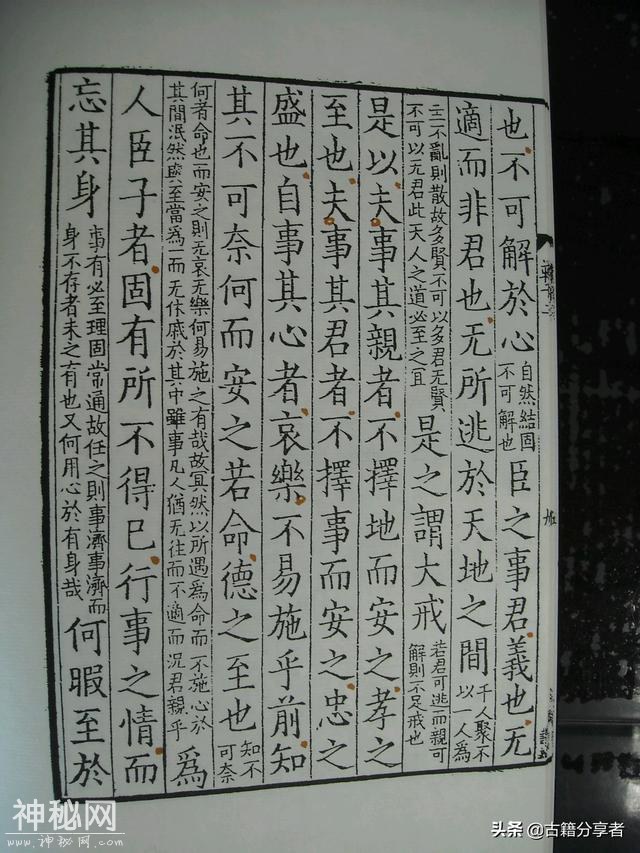 也不可解於心自然結固不可解也臣之事君義也无
適而非君也无所逃於天地之間千人聚不以一人為
主不亂則散故多賢不可以多君无賢不可以无君此天人之道必至之宜是之謂大戒若君可逃而親可解則不足戒也
是以夫事其親者不擇地而安之孝之
至也夫事其君者不擇事而安之忠之
盛也自事其心者哀樂不易施乎前知
其不可奈何而安之若命德之至也知不可奈
何者命也而安之則无哀无樂何易施之有哉故冥然以所遇為命而不施心於其間泯然與至當為一而无休戚於其中雖事凡人猶无往而不適而況君親乎為
人臣子者固有所不得已行事之情而
忘其身事有必至理固常通故任之則事濟事濟而身不存者未之有也又何用心於有身哉何暇至於
神秘网
www.小神秘网.com
头条 @古籍分享者